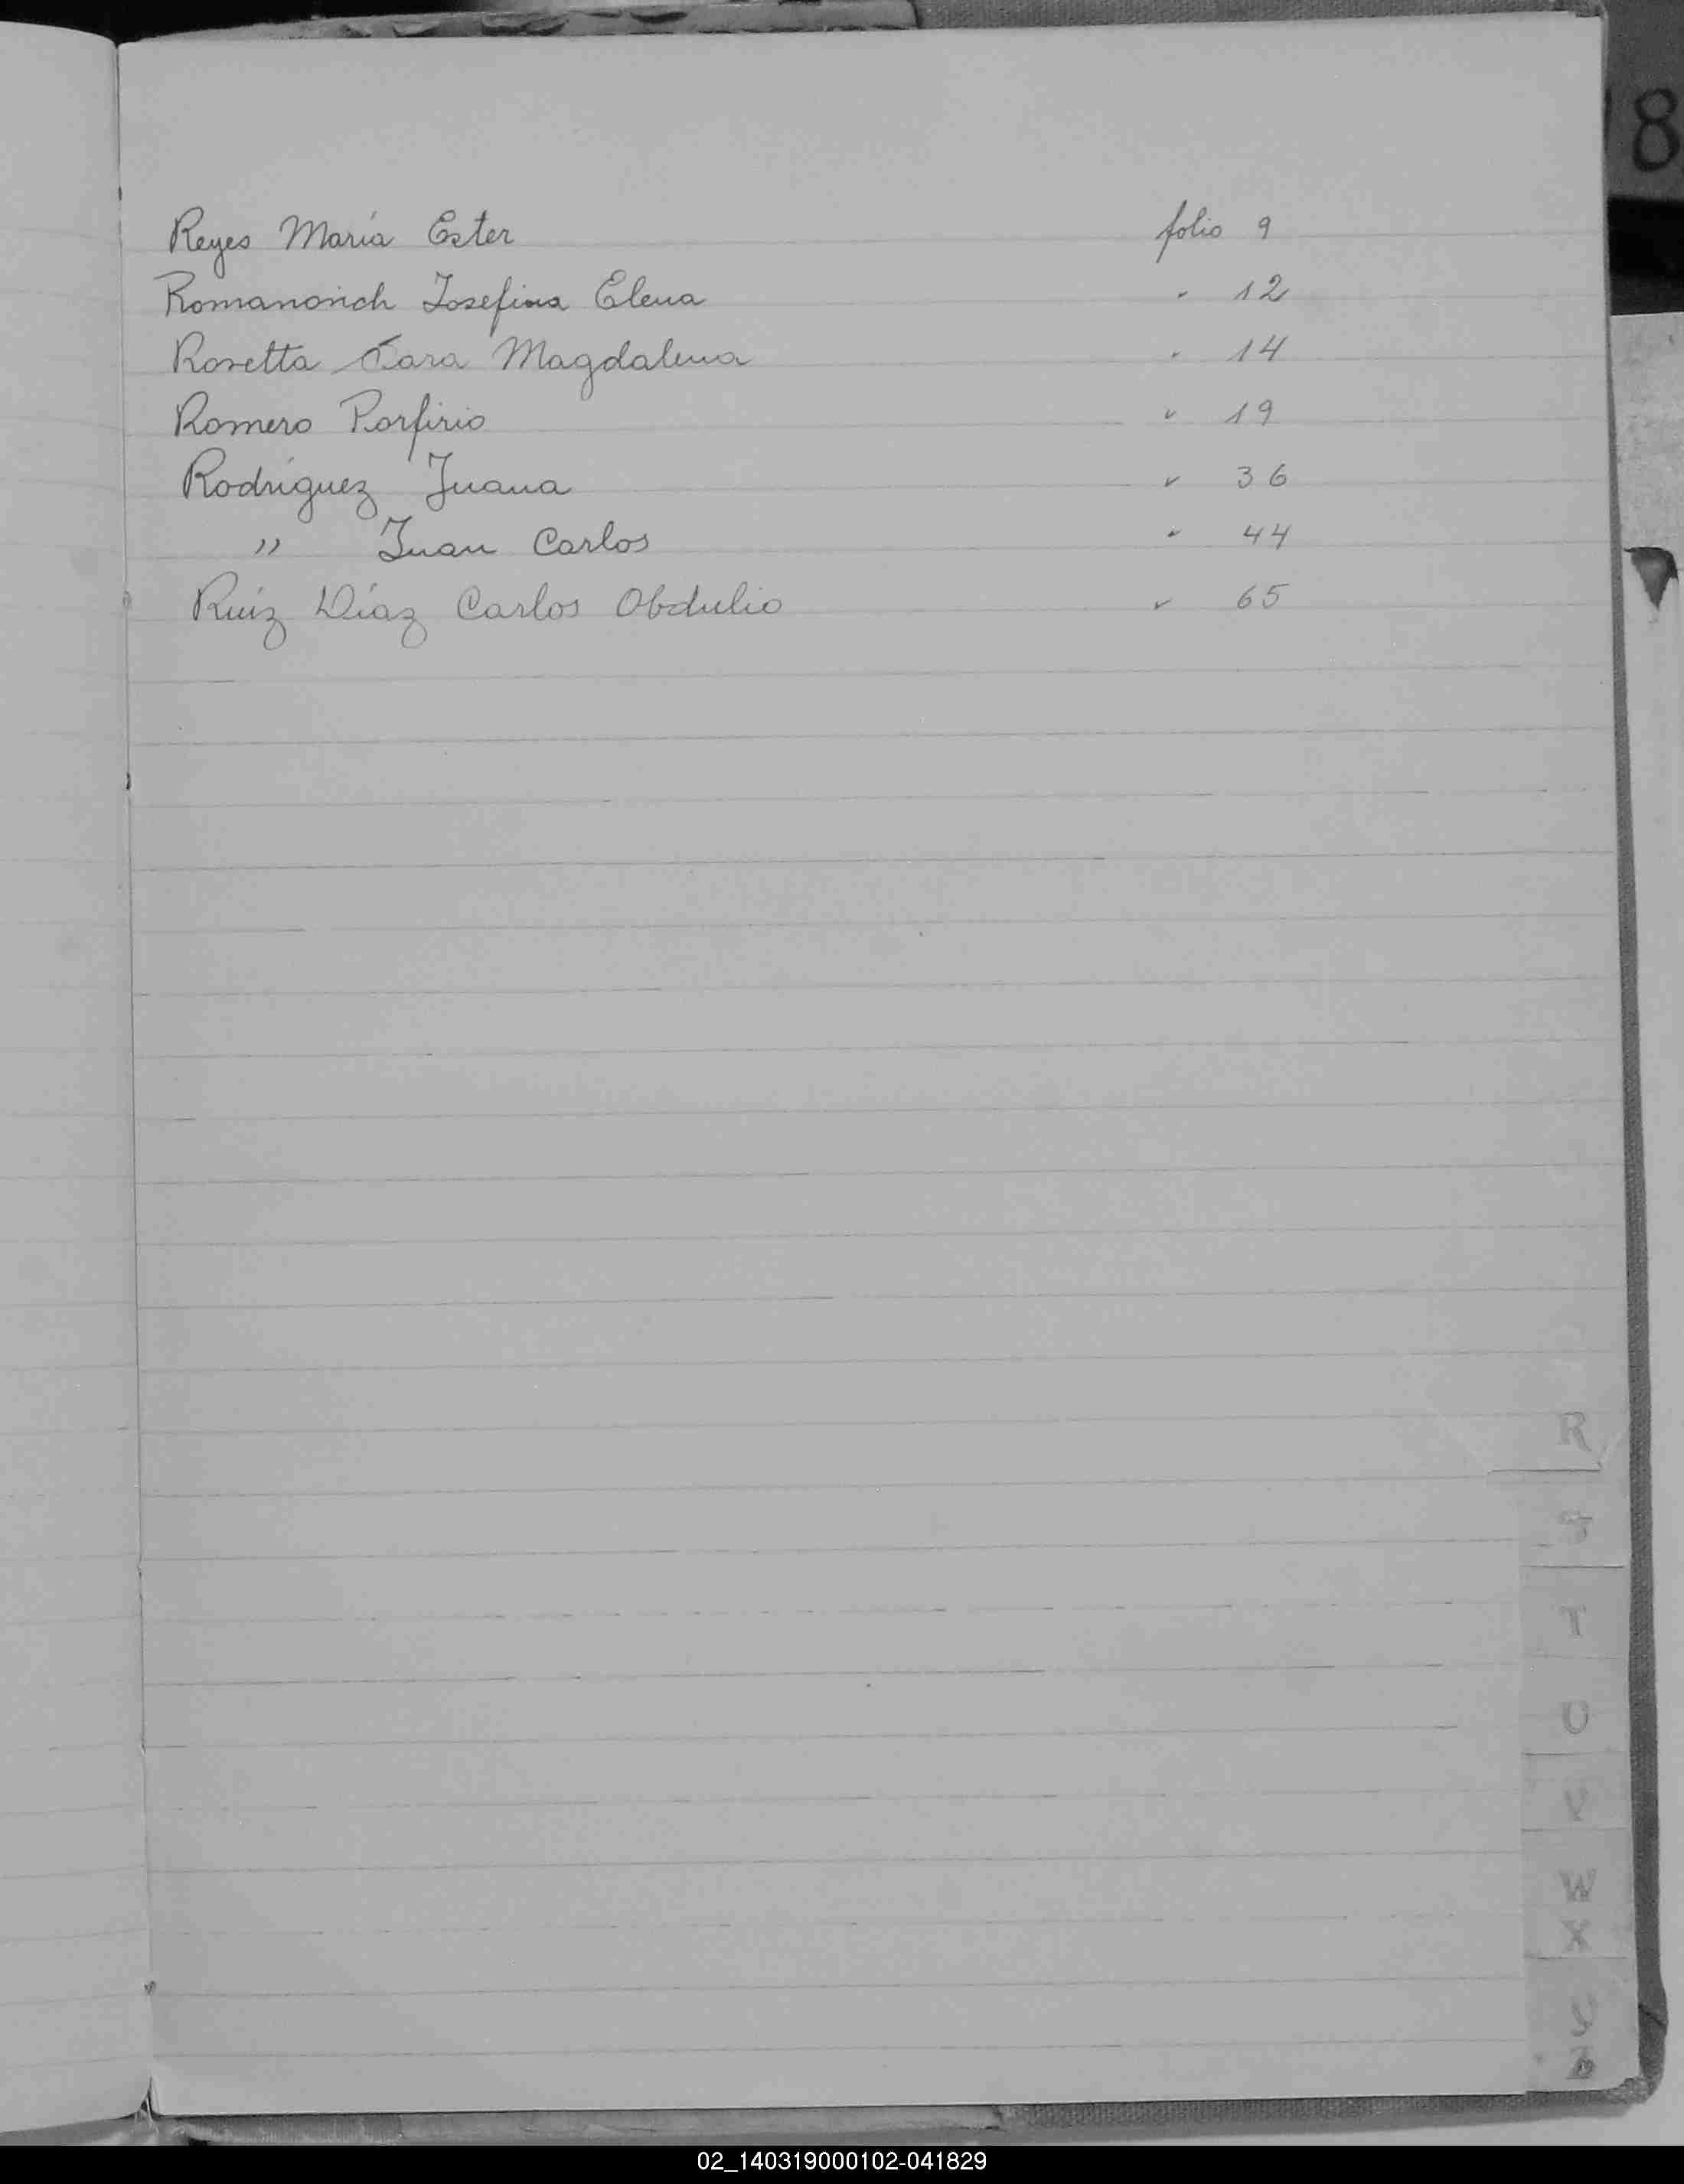 8
Reyes María Ester folio 9
Romanovich Josefina Elena " 12
Rosetta Sara Magdalena " 14
Romero Porfirio " 19
Rodríguez Juana " 36
" Juan Carlos " 44
Ruiz Díaz Carlos Obdulio " 65
R
S
T
U
V
W
X
Y
Z
02_140319000102-041829